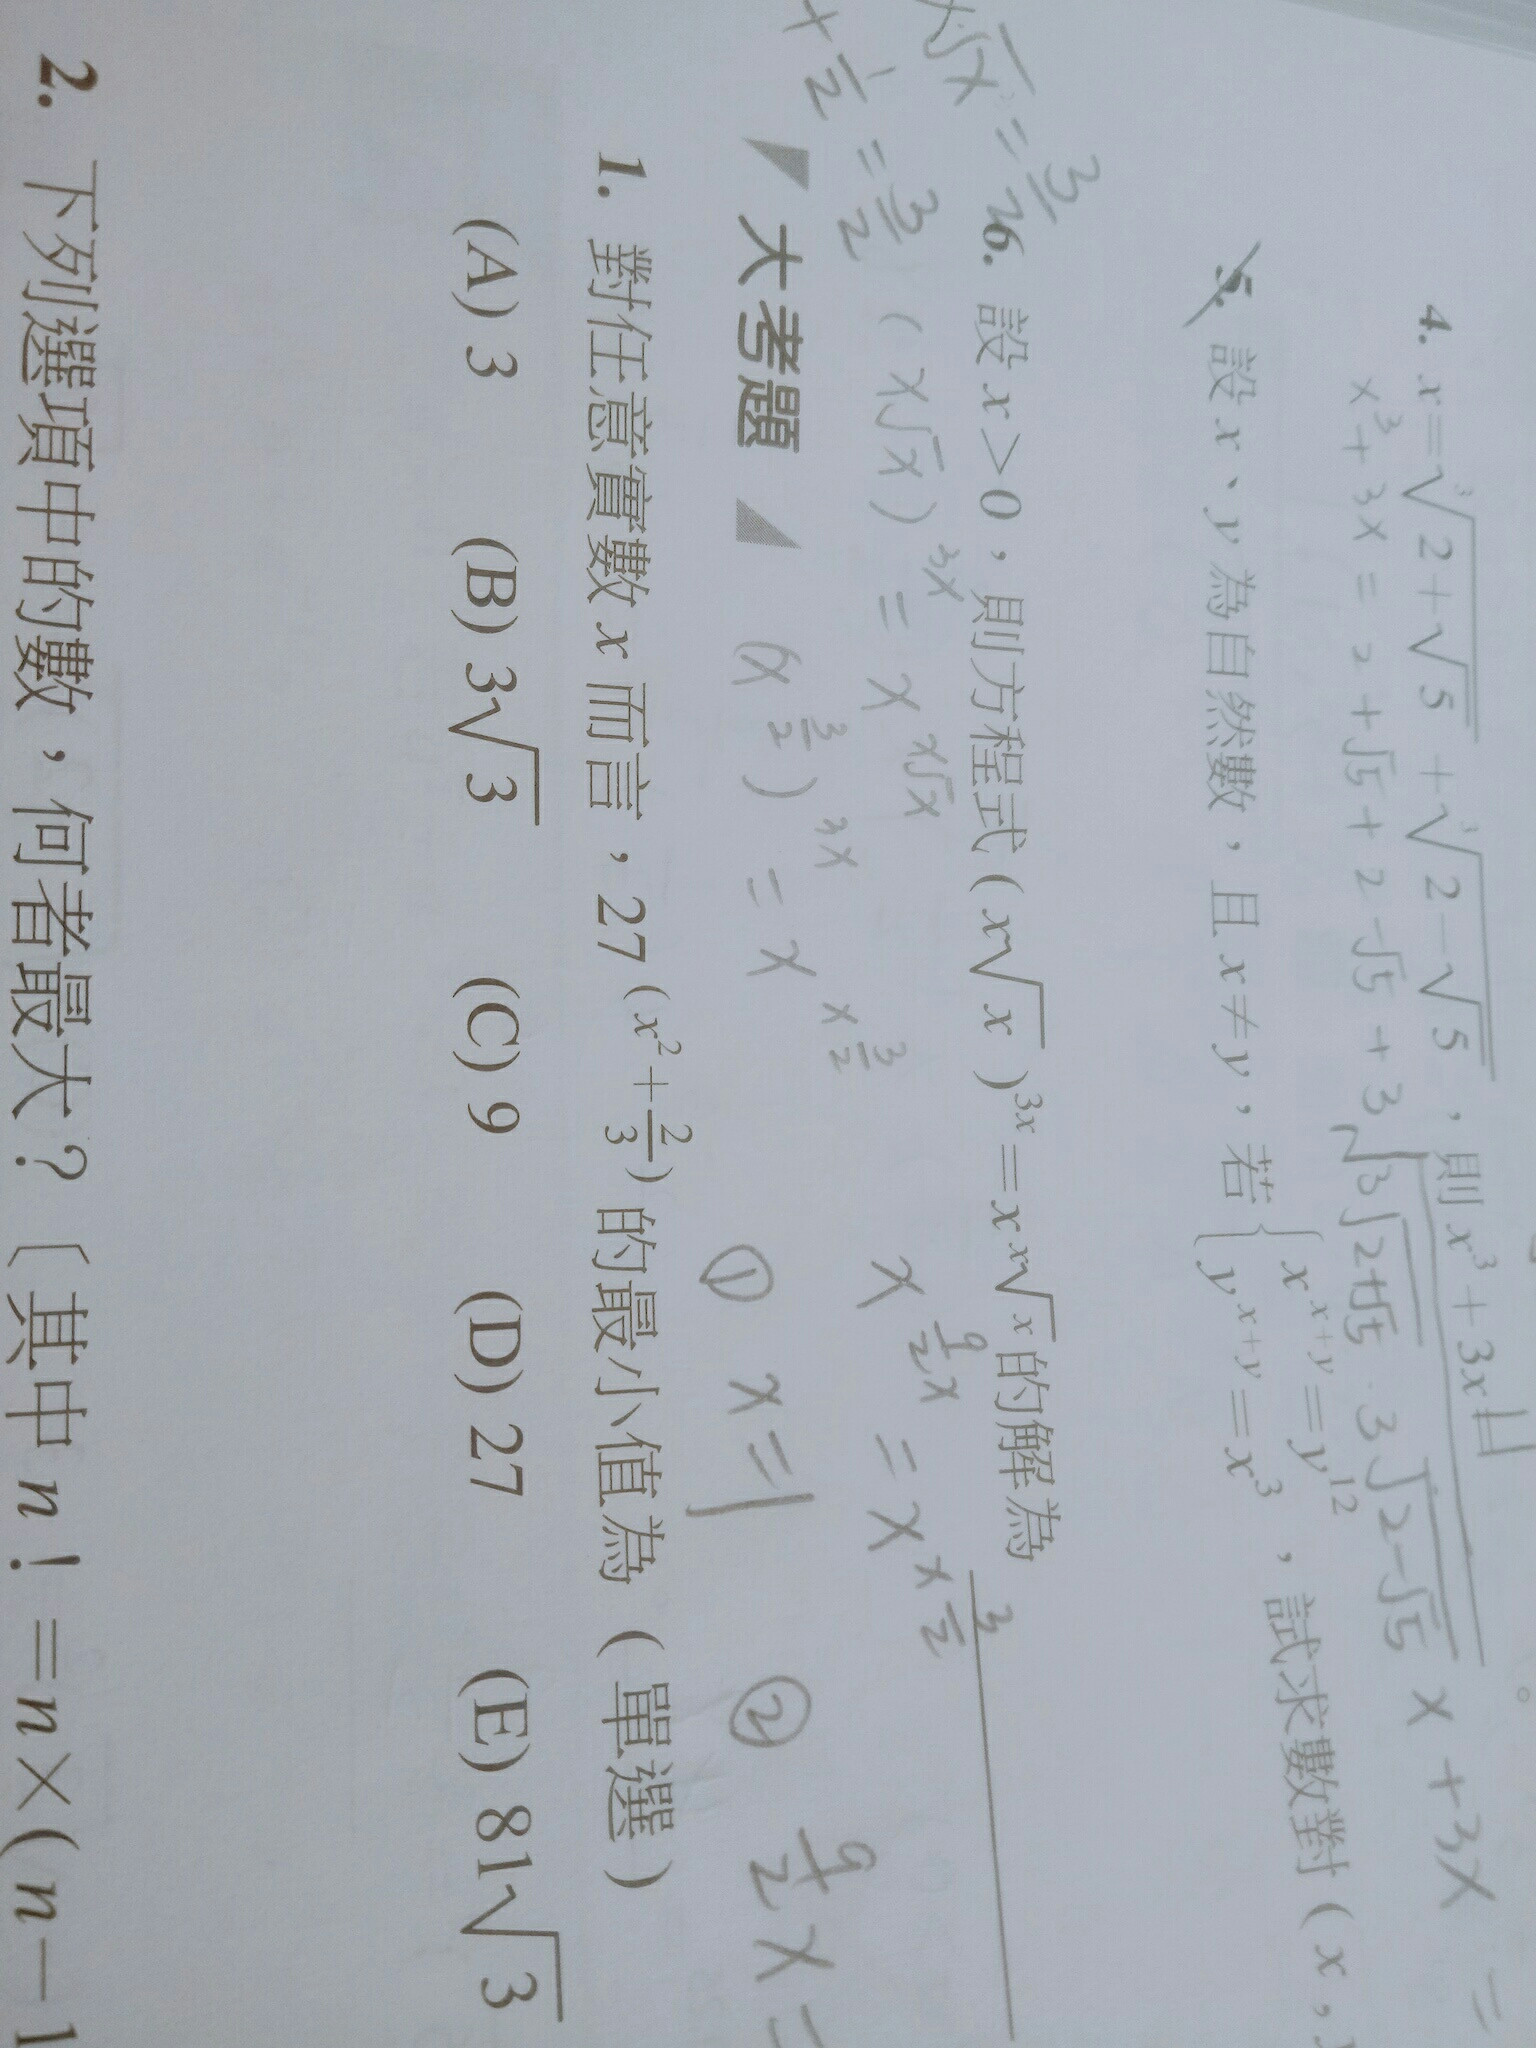 4. x=∛(2+√5)+∛(2−√5)，則 x³+3x
x³+3x = 2+√5+2-√5+3 ∛2+√5 · 3√2-√5 x +3x =
5. 設 x、y 為自然數，且 x≠y，若 { x^(x+y)=y^12 , y^(x+y)=x^3 ，試求數對 ( x ,
6. 設 x>0，則方程式 ( x√x )^(3x)=x^(x√x) 的解為
x·√x = 3/2
x 1/2 = 3/2
(x√x)^(3x) = x^(x√x)
x^(9/2 x) = x^(x^(3/2))
大考題
(x^(3/2))^(3x) = x^(x^(3/2))
① x=1 ② 9/2 x =
1. 對任意實數 x 而言，27^(x²+2/3) 的最小值為（單選）
(A) 3 (B) 3√3 (C) 9 (D) 27 (E) 81√3
2. 下列選項中的數，何者最大？〔其中 n！=n×(n−1